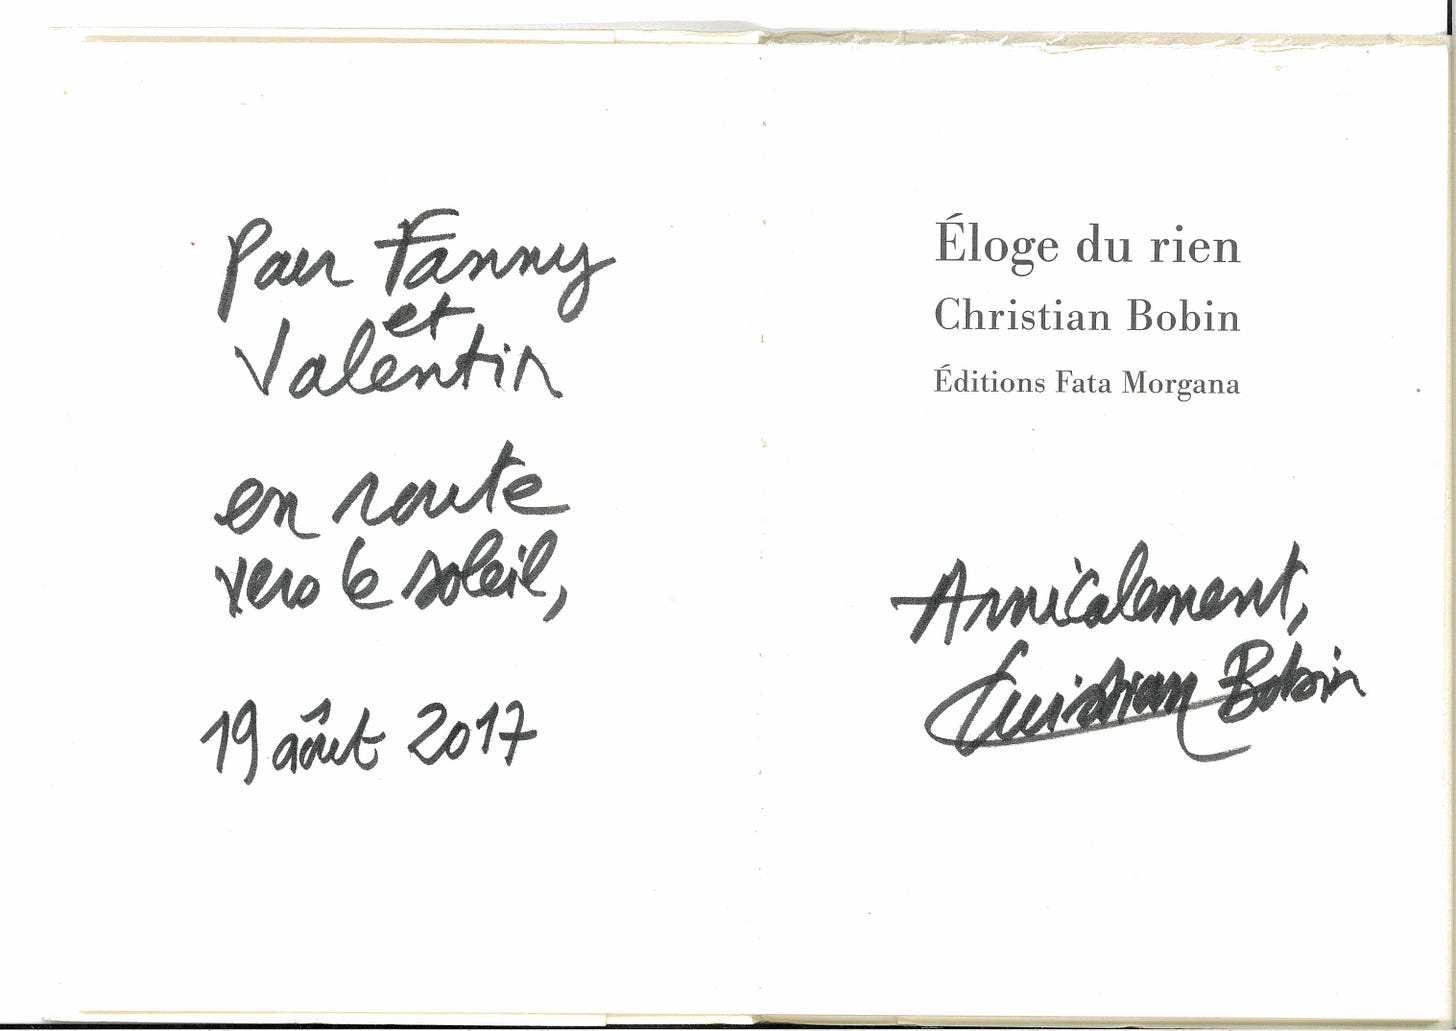 Pour Fanny
et
Valentin
en route
vers le soleil,
19 août 2017
Éloge du rien
Christian Bobin
Éditions Fata Morgana
Amicalement,
Christian Bobin